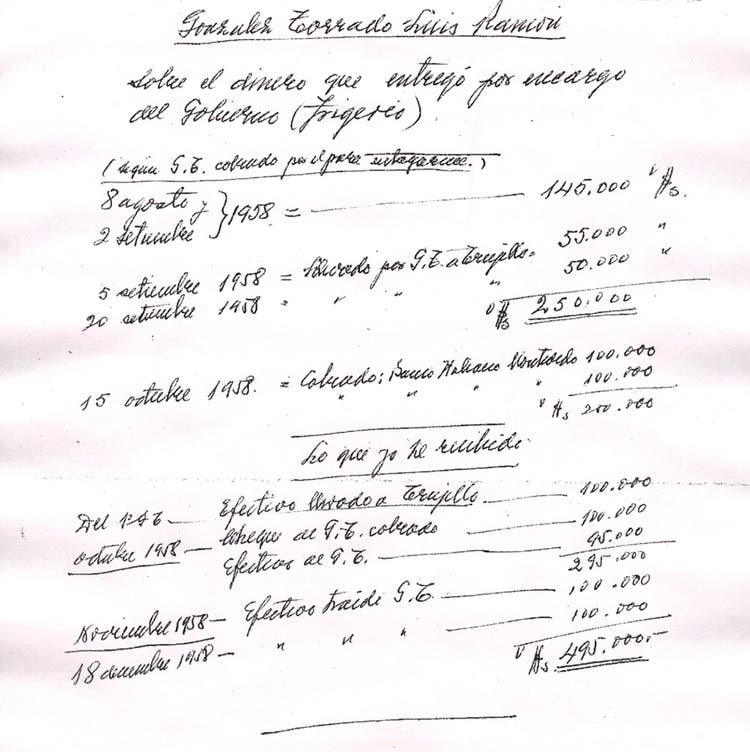 Gonzalez Torrado Luis Ramón
Sobre el dinero que entregó por encargo
del Gobierno (Frigerio)
(según G.T. cobrado por el para entregarme.)
8 agosto y
2 setiembre } 1958 = 145.000 $s.
5 setiembre 1958 = llevado por G.T. a Trujillo = 55.000 "
20 setiembre 1958 = " " " 50.000 "
$s 250.000
15 octubre 1958. = Cobrado: Banco Italiano Montevideo 100.000
" " " 100.000
$s 200.000
Lo que yo he recibido
Del 1º al 5 Efectivo llevado a Trujillo 100.000
octubre 1958 Cheque de G.T. cobrado 100.000
Efectivo de G.T. 95.000
295.000
Noviembre 1958 - Efectivo traído G.T. 100.000
18 diciembre 1958 - " " " 100.000
$s 495.000.-